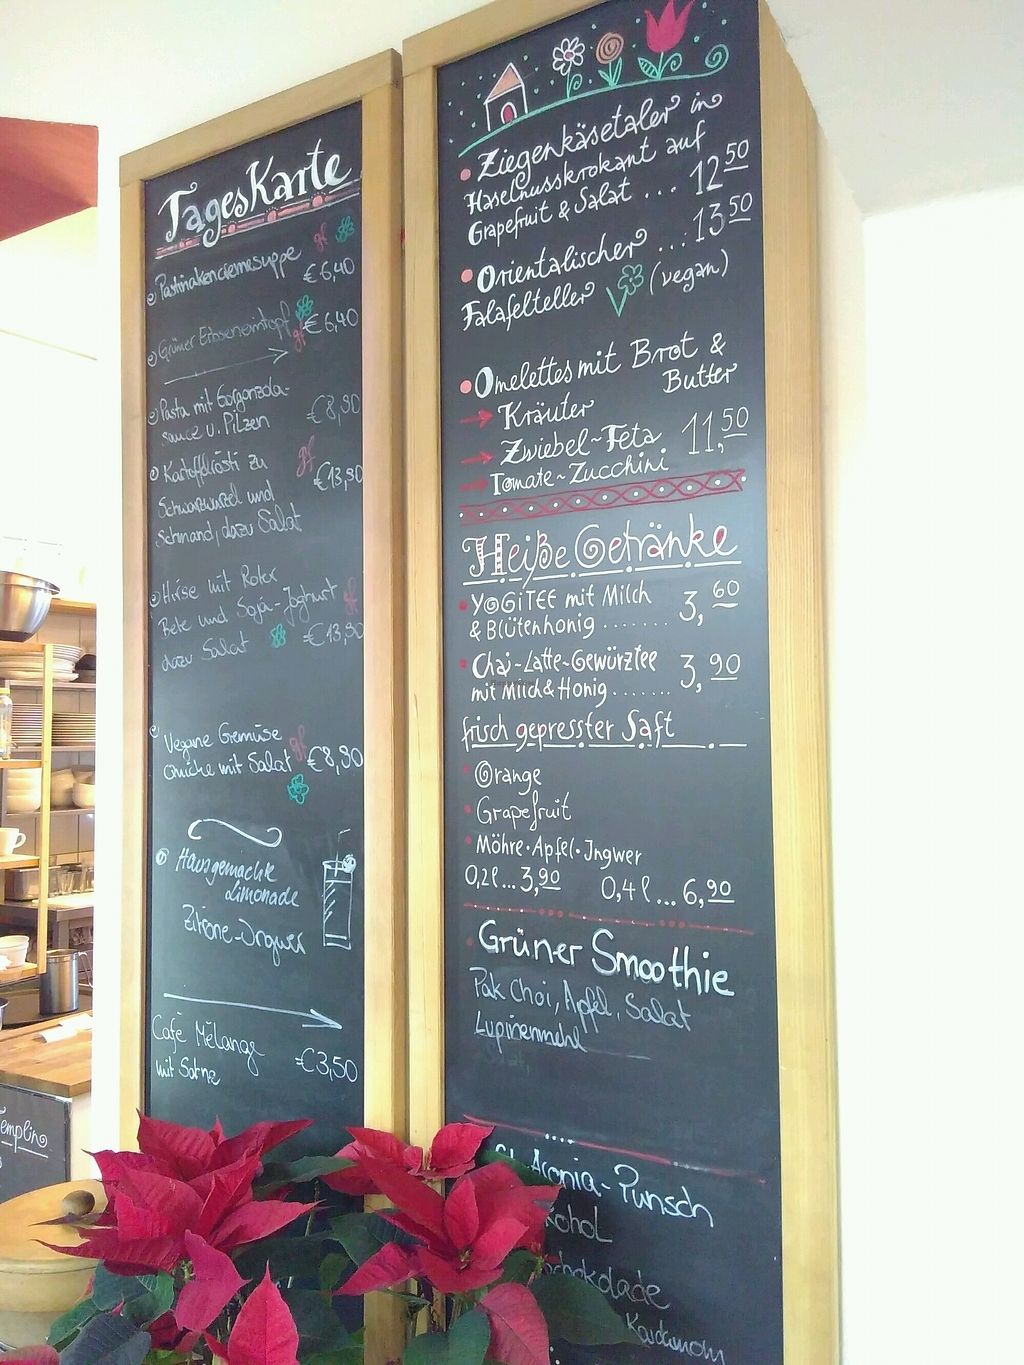 TagesKarte
Pastinakencremesuppe gf
€6,40
Grüner Erbseneintopf gf €6,40
Pasta mit Gorgonzola-
sauce u. Pilzen €8,90
Kartoffelrösti zu gf
Schwarzwurzel und €13,90
Schmand, dazu Salat
Hirse mit Roter
Bete und Soja-Joghurt gf
dazu Salat €13,90
Vegane Gemüse gf
Quiche mit Salat €8,90
Hausgemachte
Limonade
Zitrone-Ingwer
Café Mélange
mit Sahne €3,50
Templin
Ziegenkäsetaler in
Haselnusskrokant auf
Grapefruit & Salat ... 12 50
Orientalischer ... 13 50
Falafelteller (vegan)
Omelettes mit Brot &
Butter
Kräuter
Zwiebel~Feta 11,50
Tomate~Zucchini
Heiße Getränke
YOGiTEE mit Milch
& Blütenhonig ....... 3,60
Chai~Latte~Gewürztee
mit Milch & Honig ....... 3,90
frisch gepresster Saft
Orange
Grapefruit
Möhre·Apfel·Ingwer
0,2l...3,90 0,4l...6,90
Grüner Smoothie
Pak Choi, Apfel, Salat
Lupinenmehl
Aronia-Punsch
kohol
chokolade
Kardamom